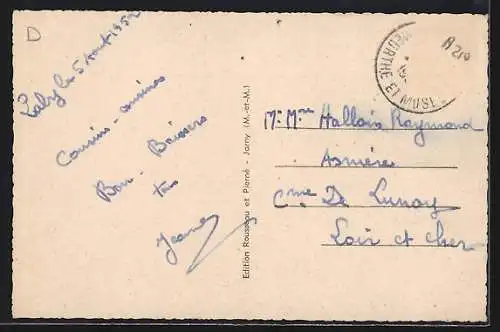 D
le 5 Aout 1952
Cousins - cousines
Bon - Baisers
Jeanne
Edition Rousseau et Pierné - Jarny (M.-et-M.)
MEURTHE ET MOSELLE
A 210
Mr Mme Hallois Raymond
Asnières
Cme De Lunay
Loir et cher